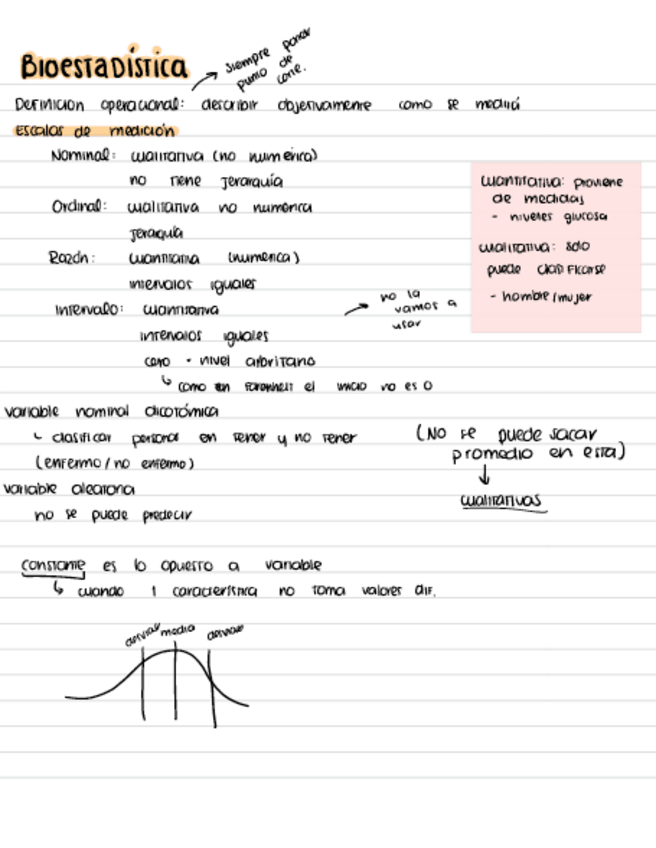 Bioestadística
siempre poner
punto de
corte.
Definicion operacional: describir objetivamente como se medirá
Escalas de medición
Nominal: cualitativa (no numerica)
no tiene jerarquía
Ordinal: cualitativa no numerica
jeraquía
Razón: cuantitativa (numerica)
intervalos iguales
Intervalo: cuantitativa
intervalos iguales
cero - nivel arbitrario
como en farenheit el inicio no es 0
no la
vamos a
usar
cuantitativa: proviene
de medidas
- niveles glucosa
cualitativa: solo
puede clasificarse
- hombre/mujer
variable nominal dicotómica
clasificar personas en tener y no tener
(enfermo/no enfermo)
(No se puede sacar
promedio en esta)
cualitativas
variable aleatoria
no se puede predecir
constante es lo opuesto a variable
cuando 1 característica no toma valores dif.
media